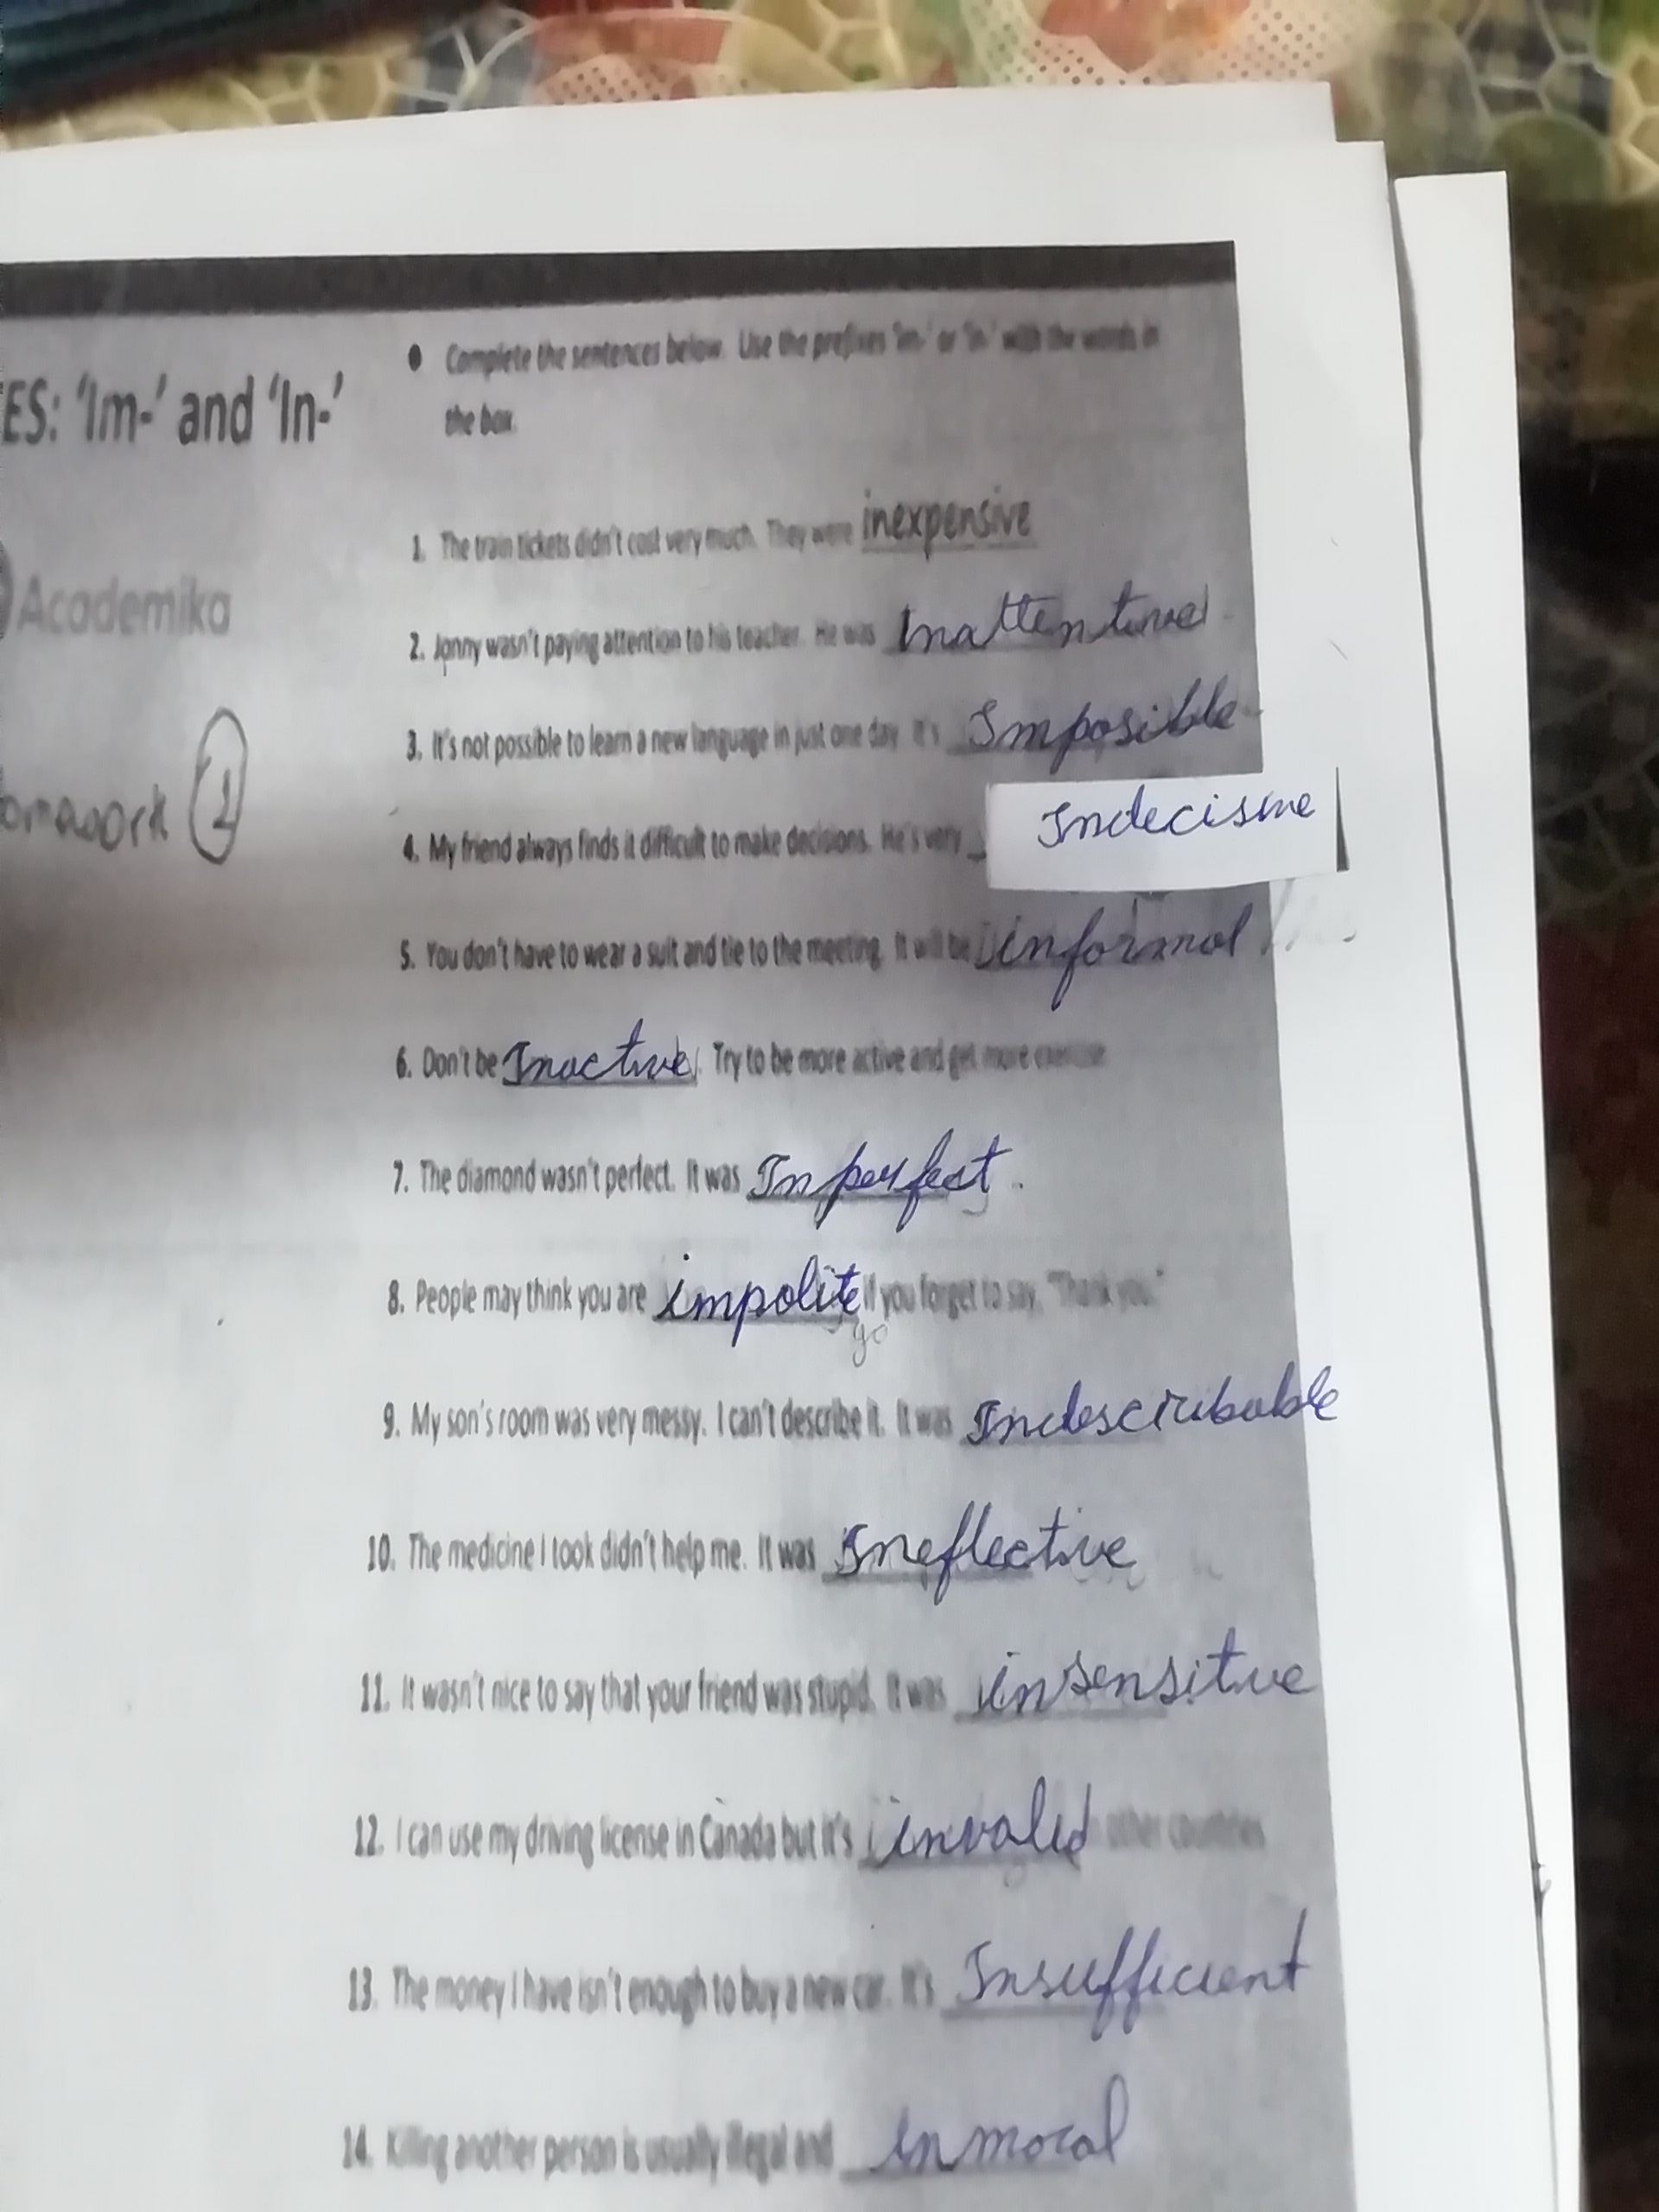 ES: 'Im-' and 'In-'
Academika
omework 1
• Complete the sentences below. Use the prefixes 'im-' or 'in-' with the words in
the box.
1. The train tickets didn't cost very much. They were inexpensive
2. Jonny wasn't paying attention to his teacher. He was Inattentive
3. It's not possible to learn a new language in just one day. It's Imposible
4. My friend always finds it difficult to make decisions. He's very Indecisive
5. You don't have to wear a suit and tie to the meeting. It will be informal
6. Don't be Inactive. Try to be more active and get more exercise
7. The diamond wasn't perfect. It was Inperfect.
8. People may think you are impolite if you forget to say, "Thank you."
9. My son's room was very messy. I can't describe it. It was
10. The medicine I took didn't help me. It was Ineflective
11. It wasn't nice to say that your friend was stupid. It was insensitve
12. I can use my driving license in Canada but it's invalid other countries
13. The money I have isn't enough to buy a new car. It's Insufficient
14. Killing another person is usually illegal and inmoral